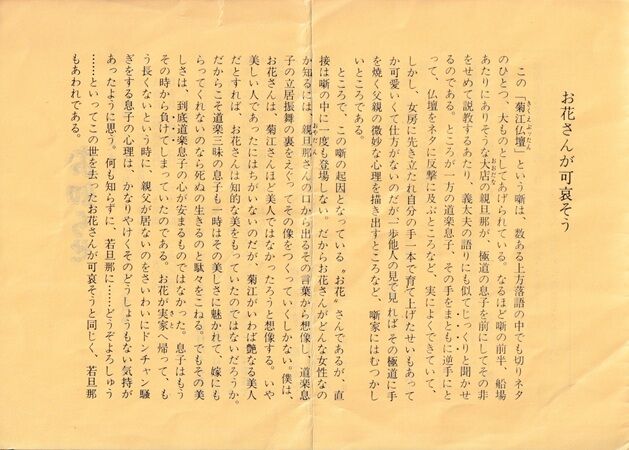 お花さんが可哀そう
この「菊江仏壇」という噺は、数ある上方落語の中でも切りネタ
のひとつ、大ものとしてあげられている。なるほど噺の前半、船場
あたりにありそうな大店の親旦那が、極道の息子を前にしてその非
をせめて説教するあたり、義太夫の語りにも似てじっくりと聞かせ
るのである。ところが一方の道楽息子、その手をまともに逆手にと
って、仏壇をネタに反撃に及ぶところなど、実によくできていて、
しかし、女房に先き立たれ自分の手一本で育て上げたせいもあって
か可愛いくて仕方がないのだが一歩他人の見で見れば その極道に手
を焼く父親の微妙な心理を描き出すところなど、噺家にはむつかし
いところである。
ところで、この噺の起因となっている〝お花〟さんであるが、直
接は噺の中に一度も登場しない。だからお花さんがどんな女性なの
か知るには、親旦那さんの口から出るその言葉から想像し、道楽息
子の立居振舞の裏をえぐってその像をつくっていくしかない。僕は、
お花さんは、菊江さんほど美人ではなかったろうと想像する。いや
美しい人であったにはちがいないのだが、菊江がいわば艶なる美人
だとすれば、お花さんは知的な美をもっていたのではないだろうか。
だからこそ道楽三昧の息子も一時はその美しさに魅かれて、嫁にも
らってくれないのなら死ぬの生きるのと駄々をこねる。でもその美
しさは、到底道楽息子の心が安まるものではなかった。息子はもう
その時から負けてしまっていたのである。お花が実家へ帰って、も
う長くないという時に、親父が居ないのをさいわいにドンチャン騒
ぎをする息子の心理は、かなりやけくそのどうしょうもない気持が
あったように思う。何も知らずに、若旦那に……どうぞよろしゅう
……といってこの世を去ったお花さんが可哀そうと同じく、若旦那
もあわれである。